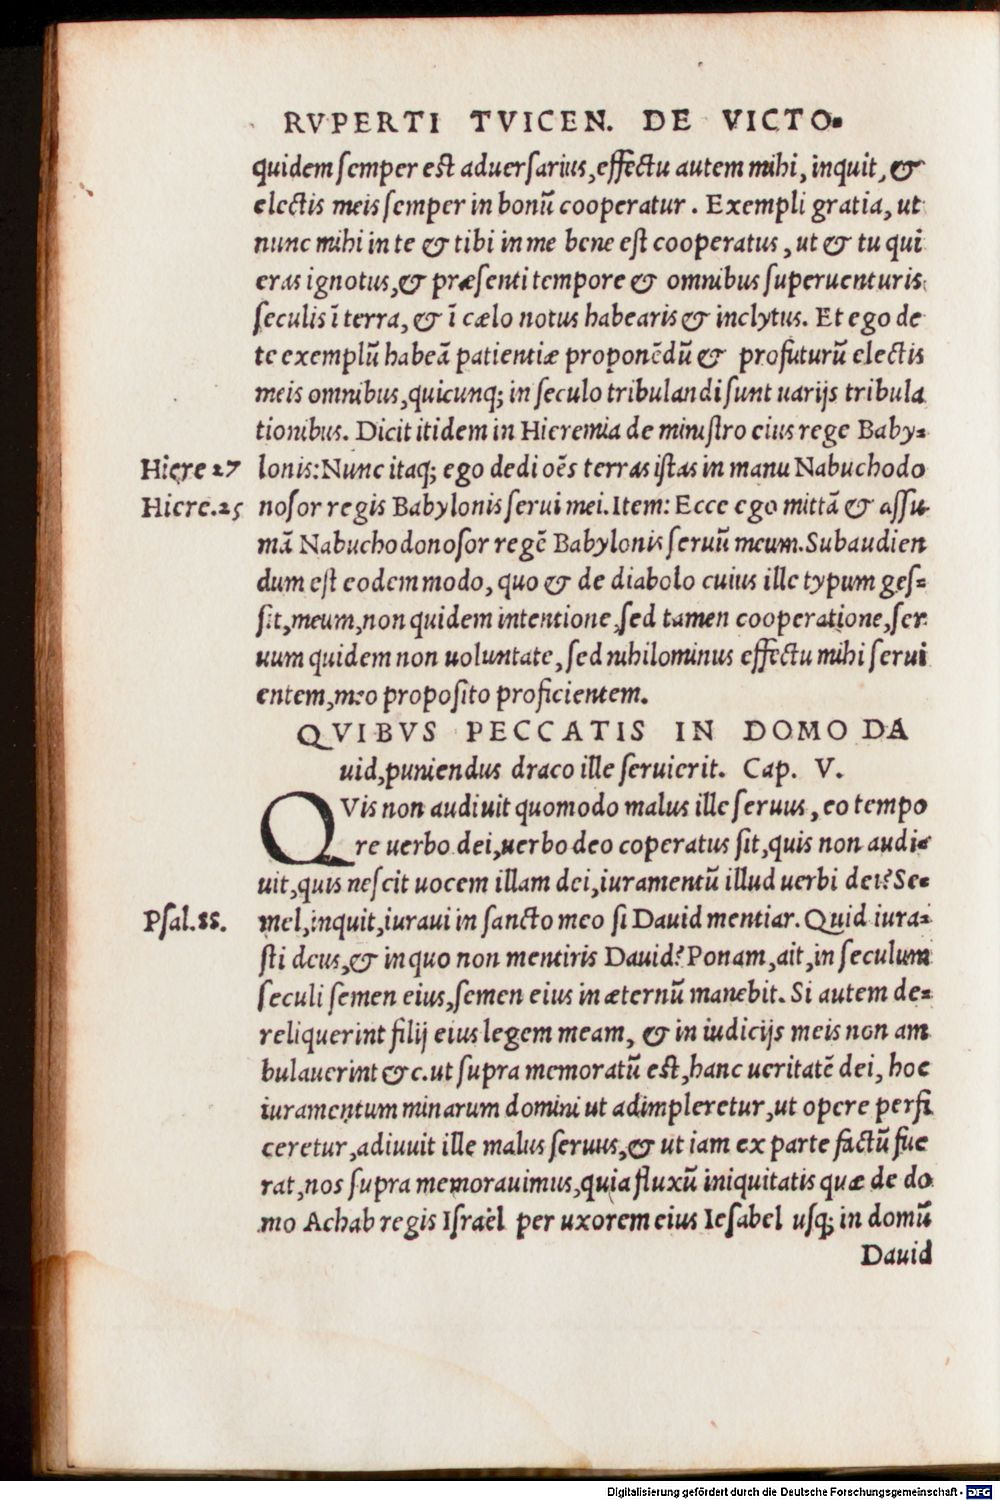 RVPERTI TVICEN. DE VICTO-
quidem semper est aduersarius, effectu autem mihi, inquit, &
electis meis semper in bonū cooperatur. Exempli gratia, ut
nunc mihi in te & tibi in me bene est cooperatus, ut & tu qui
eras ignotus, & præsenti tempore & omnibus superuenturis
seculis ī terra, & ī cælo notus habearis & inclytus. Et ego de
te exemplū habeā patientiæ proponēdū & profuturū electis
meis omnibus, quicunq; in seculo tribulandi sunt uarijs tribula
tionibus. Dicit itidem in Hieremia de ministro eius rege Baby-
Hiere 27 lonis: Nunc itaq; ego dedi oēs terras istas in manu Nabuchodo
Hiere. 25 nosor regis Babylonis serui mei. Item: Ecce ego mittā & assu-
mā Nabuchodonosor regē Babylonis seruū meum. Subaudien
dum est eodem modo, quo & de diabolo cuius ille typum ges-
sit, meum, non quidem intentione, sed tamen cooperatione, ser
uum quidem non uoluntate, sed nihilominus effectu mihi serui
entem, meo proposito proficientem.
QVIBVS PECCATIS IN DOMO DA
uid, puniendus draco ille seruierit. Cap. V.
QVis non audiuit quomodo malus ille seruus, eo tempo
re uerbo dei, uerbo deo coperatus sit, quis non audi-
uit, quis nescit uocem illam dei, iuramentū illud uerbi dei? Se-
Psal. 88. mel, inquit, iuraui in sancto meo si Dauid mentiar. Quid iura-
sti deus, & in quo non mentiris Dauid? Ponam, ait, in seculum
seculi semen eius, semen eius in æternū manebit. Si autem de-
reliquerint filij eius legem meam, & in iudicijs meis non am
bulauerint &c. ut supra memoratū est, hanc ueritatē dei, hoc
iuramentum minarum domini ut adimpleretur, ut opere perfi
ceretur, adiuuit ille malus seruus, & ut iam ex parte factū fue
rat, nos supra memorauimus, quia fluxū iniquitatis quæ de do
mo Achab regis Israël per uxorem eius Iesabel usq; in domū
Dauid
Digitalisierung gefördert durch die Deutsche Forschungsgemeinschaft - DFG